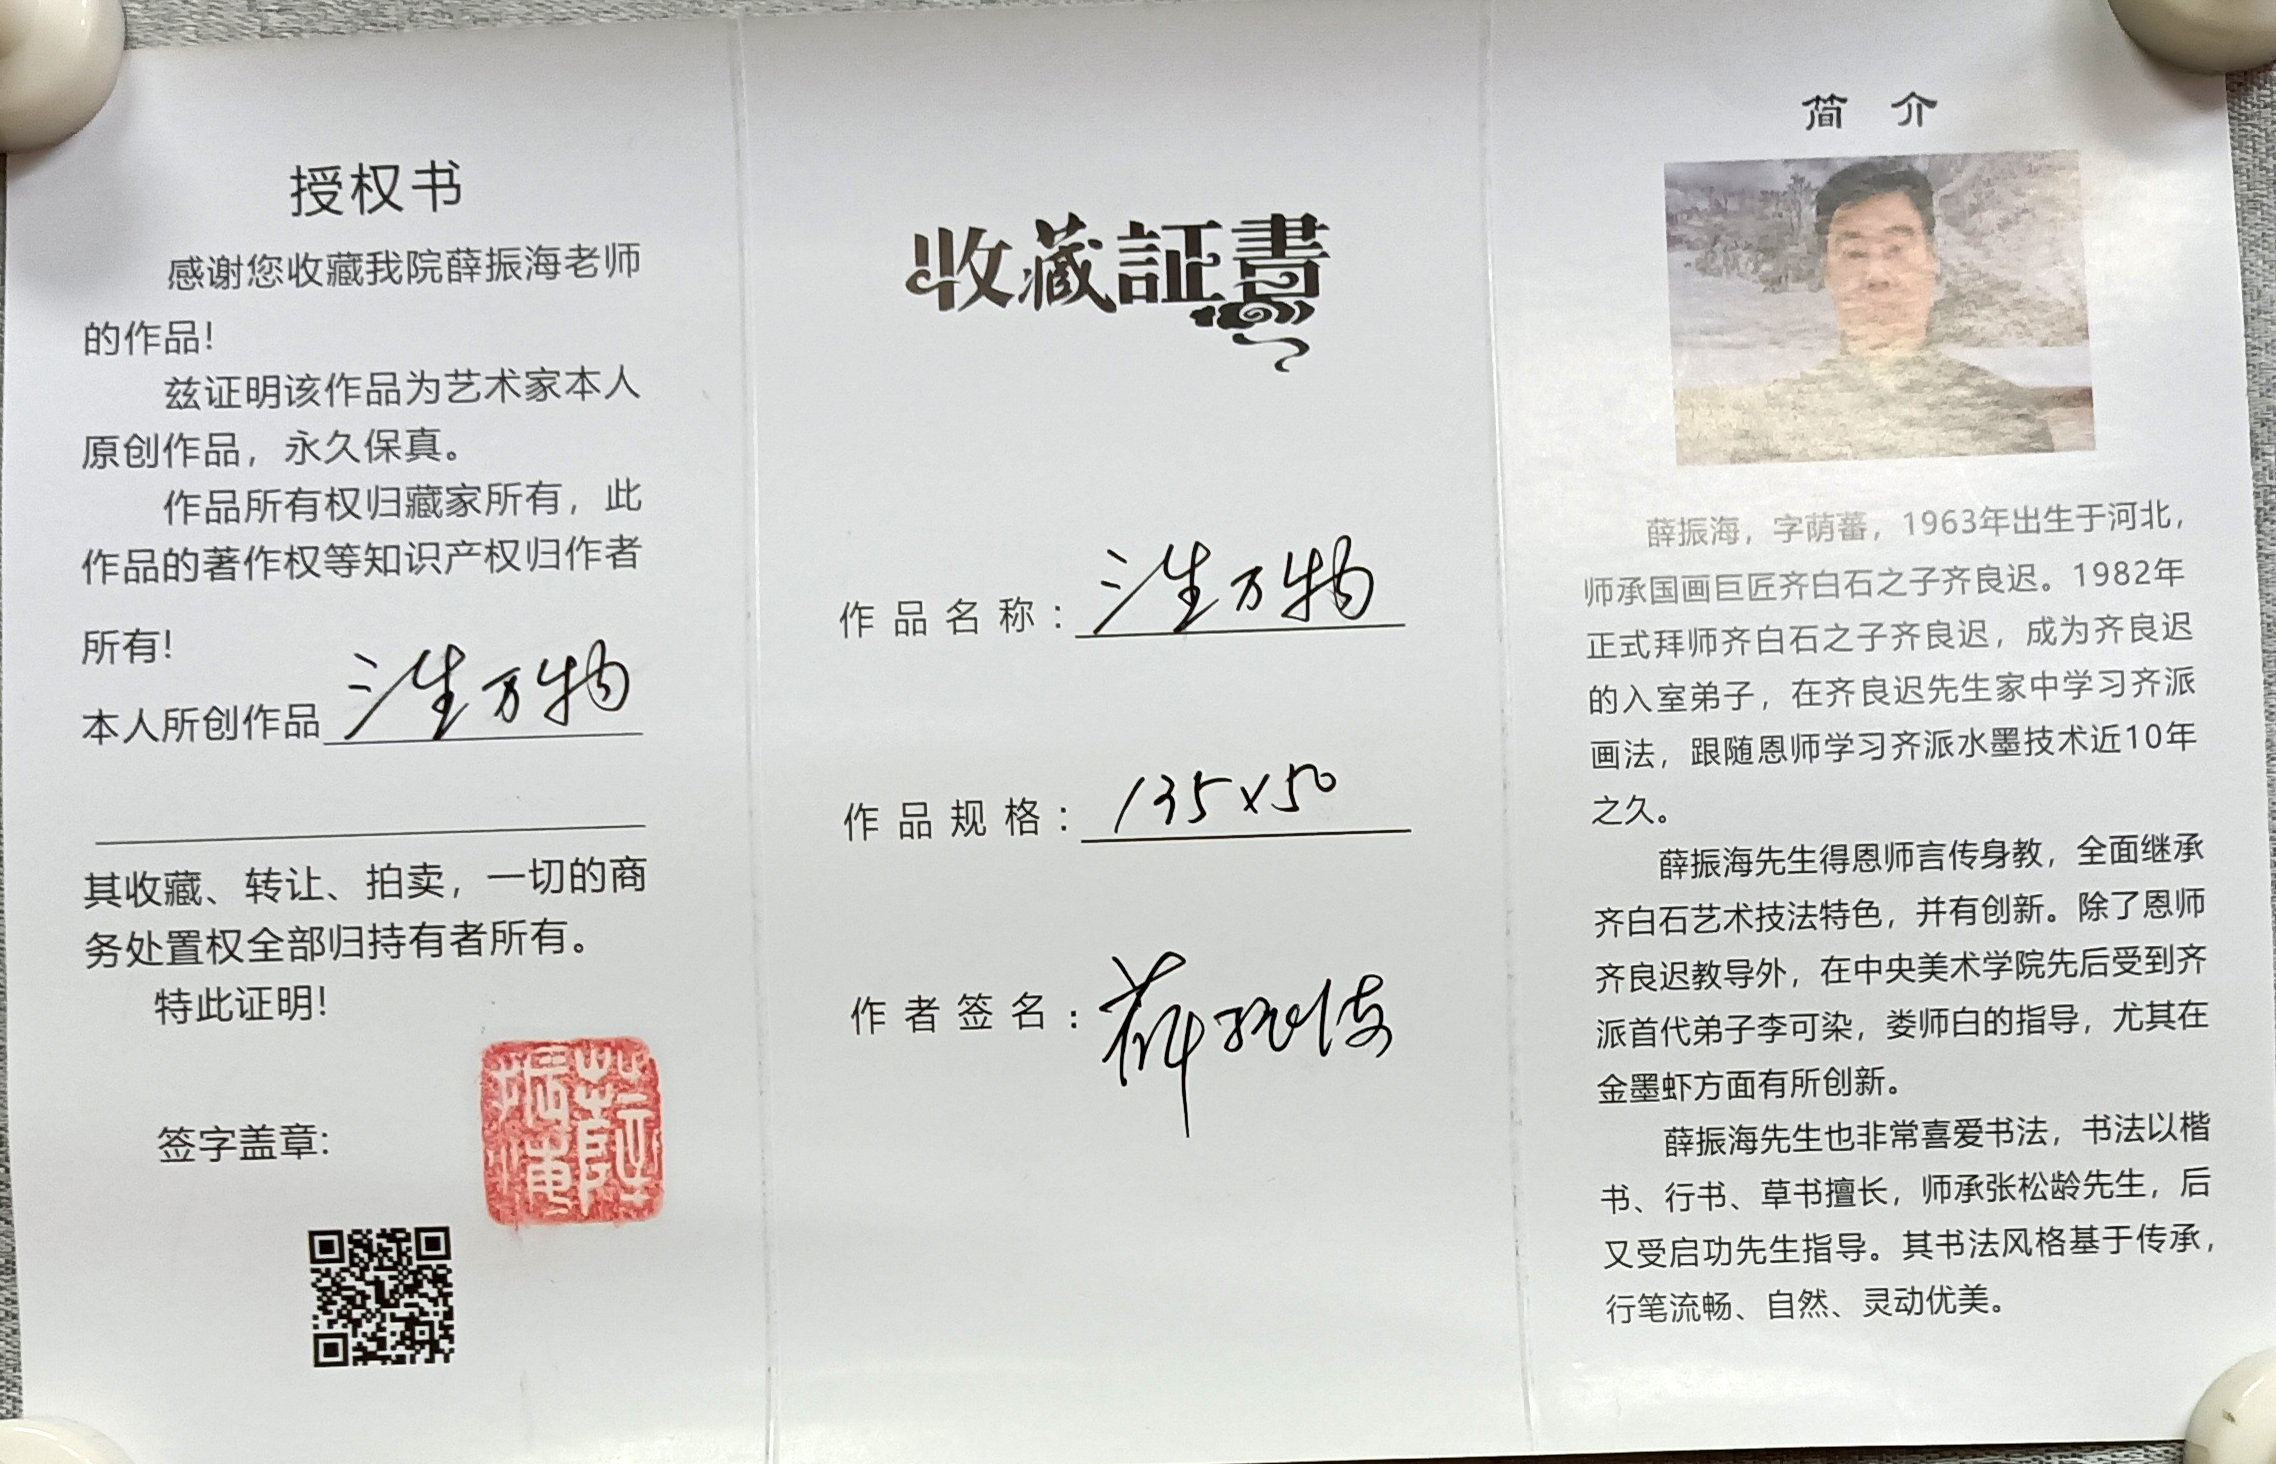 授权书
感谢您收藏我院薛振海老师
的作品!
兹证明该作品为艺术家本人
原创作品，永久保真。
作品所有权归藏家所有，此
作品的著作权等知识产权归作者
所有!
本人所创作品 三生万物
其收藏、转让、拍卖，一切的商
务处置权全部归持有者所有。
特此证明!
签字盖章:
薛振海
收藏証書
作品名称: 三生万物
作品规格: 135×50
作者签名: 薛振海
简 介
薛振海，字荫蕃，1963年出生于河北，
师承国画巨匠齐白石之子齐良迟。1982年
正式拜师齐白石之子齐良迟，成为齐良迟
的入室弟子，在齐良迟先生家中学习齐派
画法，跟随恩师学习齐派水墨技术近10年
之久。
薛振海先生得恩师言传身教，全面继承
齐白石艺术技法特色，并有创新。除了恩师
齐良迟教导外，在中央美术学院先后受到齐
派首代弟子李可染，娄师白的指导，尤其在
金墨虾方面有所创新。
薛振海先生也非常喜爱书法，书法以楷
书、行书、草书擅长，师承张松龄先生，后
又受启功先生指导。其书法风格基于传承，
行笔流畅、自然、灵动优美。